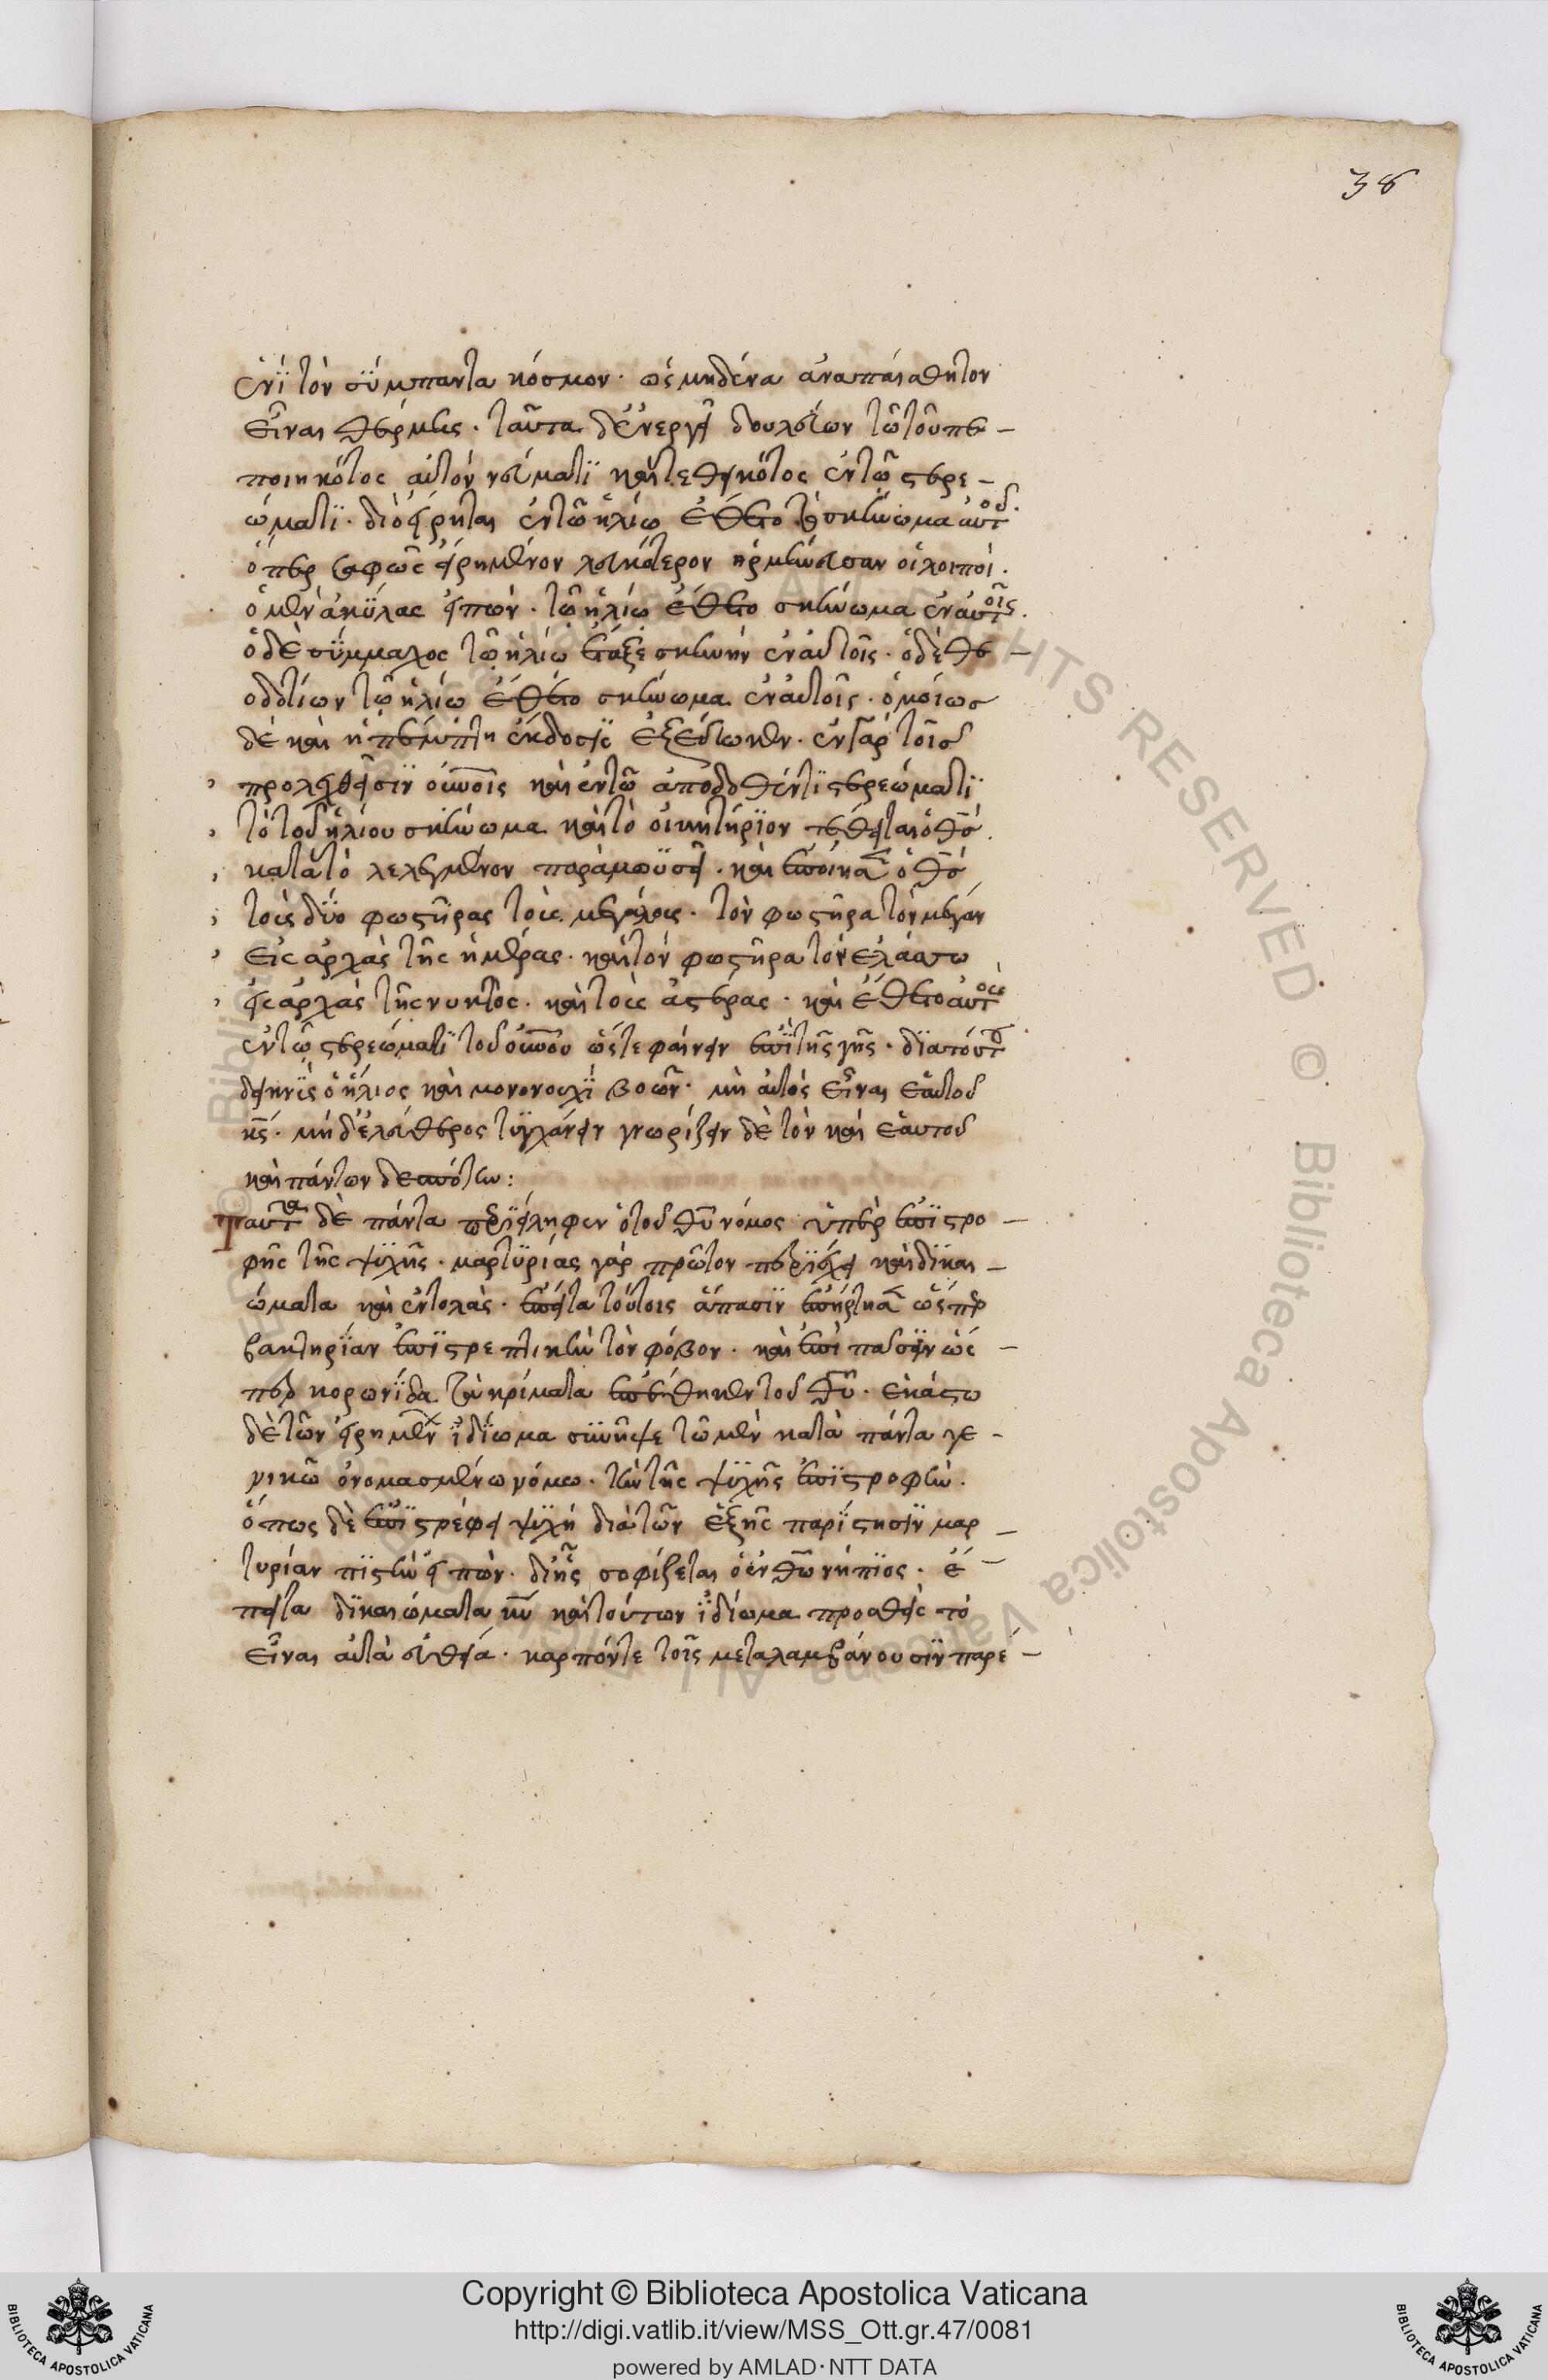 38
ενϊ τὸν σύμπαντα κόσμον· ὡς μηδένα ἀναπαίσθητον
εἶναι θέρμης· ταῦτα δὲ ἐνεργεῖ δουλεύων τῶ τοῦ πε-
ποιηκότος αὐτὸν νεύματϊ καὶ τεθεικότος ἐν τῶ στερε-
ώματϊ· διὸ εἴρηται ἐν τῶ ἡλίω ἔθετο τὸ σκήνωμα αὐτοῦ·
ὅπερ σαφῶς εἰρημένον λευκότερον ἡρμήνευσαν οἱ λοιποί·
ὁ μὲν ἀκύλας εἰπών· τῶ ἡλίω ἔθετο σκήνωμα ἐν αὐτοῖς·
ὁ δὲ σύμμαχος τῶ ἡλίω ἔταξε σκηνὴν ἐν αὐτοῖς· ὁ δὲ θε-
οδοτίων τῶ ἡλίω ἔθετο σκήνωμα ἐν αὐτοῖς· ὁμοίως
δὲ καὶ ἡ πέμπτη ἔκδοσις ἐξέδωκεν· ἐν γὰρ τοῖς
προλεχθεῖσϊν οὐνοῖς καὶ ἐν τῶ ἀποδοθέντϊ στερεώματϊ
τὸ τοῦ ἡλίου σκήνωμα καὶ τὸ οἰκητήρϊον τέθειται ὁ θσ·
κατὰ τὸ λελεγμένον παρὰ μωϋσεῖ· καὶ ἐποίησεν ὁ θσ
τοὺς δύο φωστῆρας τοὺς μεγάλους· τὸν φωστῆρα τὸν μέγαν
εἰς ἀρχὰς τῆς ἡμέρας· καὶ τὸν φωστῆρα τὸν ἐλάσσω
εἰς ἀρχὰς τῆς νυκτός· καὶ τοὺς ἀστέρας· καὶ ἔθετο αὐτοὺς
ἐν τῶ στερεώματϊ τοῦ οὐνοῦ ὥστε φαίνειν ἐπὶ τῆς γῆς· διὰ τούτου
δείκνυσιν ὁ ἥλιος καὶ μονονουχϊ βοῶν· μὴ αὐτὸς εἶναι ἑαυτοῦ
κς· μὴ δὲ ἐλεύθερος τυγχάνειν γνωρίζειν δὲ τὸν καὶ ἑαυτοῦ
καὶ πάντων δεσπότην:
Ταῦτα δὲ πάντα περιείληφεν ὁ τοῦ θυ νόμος ὑπὲρ ἐπιστρο-
φῆς τῆς ψυχῆς· μαρτυρίας γὰρ πρῶτον περιέχει καὶ δικαι-
ώματα καὶ ἐντολὰς· ἔπειτα τούτοις ἅπασϊν ἐπήρτησεν ὥσπερ
βακτηρίαν ἐπιστρεπτικὴν τὸν φόβον· καὶ ἐπὶ πᾶσιν ὡς-
περ κορωνίδα τὰ κρίματα ἐπέθηκεν τοῦ θυ· ἑκάστω
δὲ τῶν εἰρημένων ἰδίωμα συνῆψε τῶ μὲν κατὰ πάντα γε-
νικῶ ὀνομασμένω νόμω· τὴν τῆς ψυχῆς ἐπιστροφὴν·
ὅπως δὲ ἐπιστρέφει ψυχὴ διὰ τῶν ἑξῆς παρίστησιν μαρ-
τυρίαν πιστὴν εἰπὼν· δι' ἧς σοφίζεται ὁ ἐν θῶ νήπϊος· ἔ-
πειτα δικαιώματα κυ καὶ τούτων ἰδίωμα προσθεὶς τὸ
εἶναι αὐτὰ εὐθεῖα· καρπόν τε τοῖς μεταλαμβάνουσϊν παρέ-
Copyright © Biblioteca Apostolica Vaticana
http://digi.vatlib.it/view/MSS_Ott.gr.47/0081
powered by AMLAD·NTT DATA